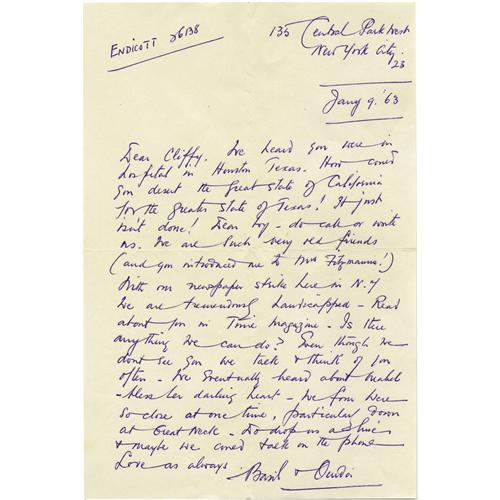 ENDICOTT 26138
135 Central Park West
New York City
23
Jany 9. '63
Dear Cliffy. We heard you were in
hospital in Houston Texas. How could
you desert the Great State of California
for the Greater State of Texas! It just
isn't done! Dear boy - do call or write
us. We are such very old friends
(and you introduced me to Mrs Fitzmaurice!)
With our newspaper strike here in N.Y
We are tremendously handicapped - Read
about you in Time magazine - Is there
anything we can do? Even though we
dont see you we talk & think of you
often - We eventually heard about Mabel
- bless her darling heart - We four were
so close at one time, particular down
at Great Neck. Do drop us a line
& maybe we could talk on the phone
Love as always.
Basil & Ouida